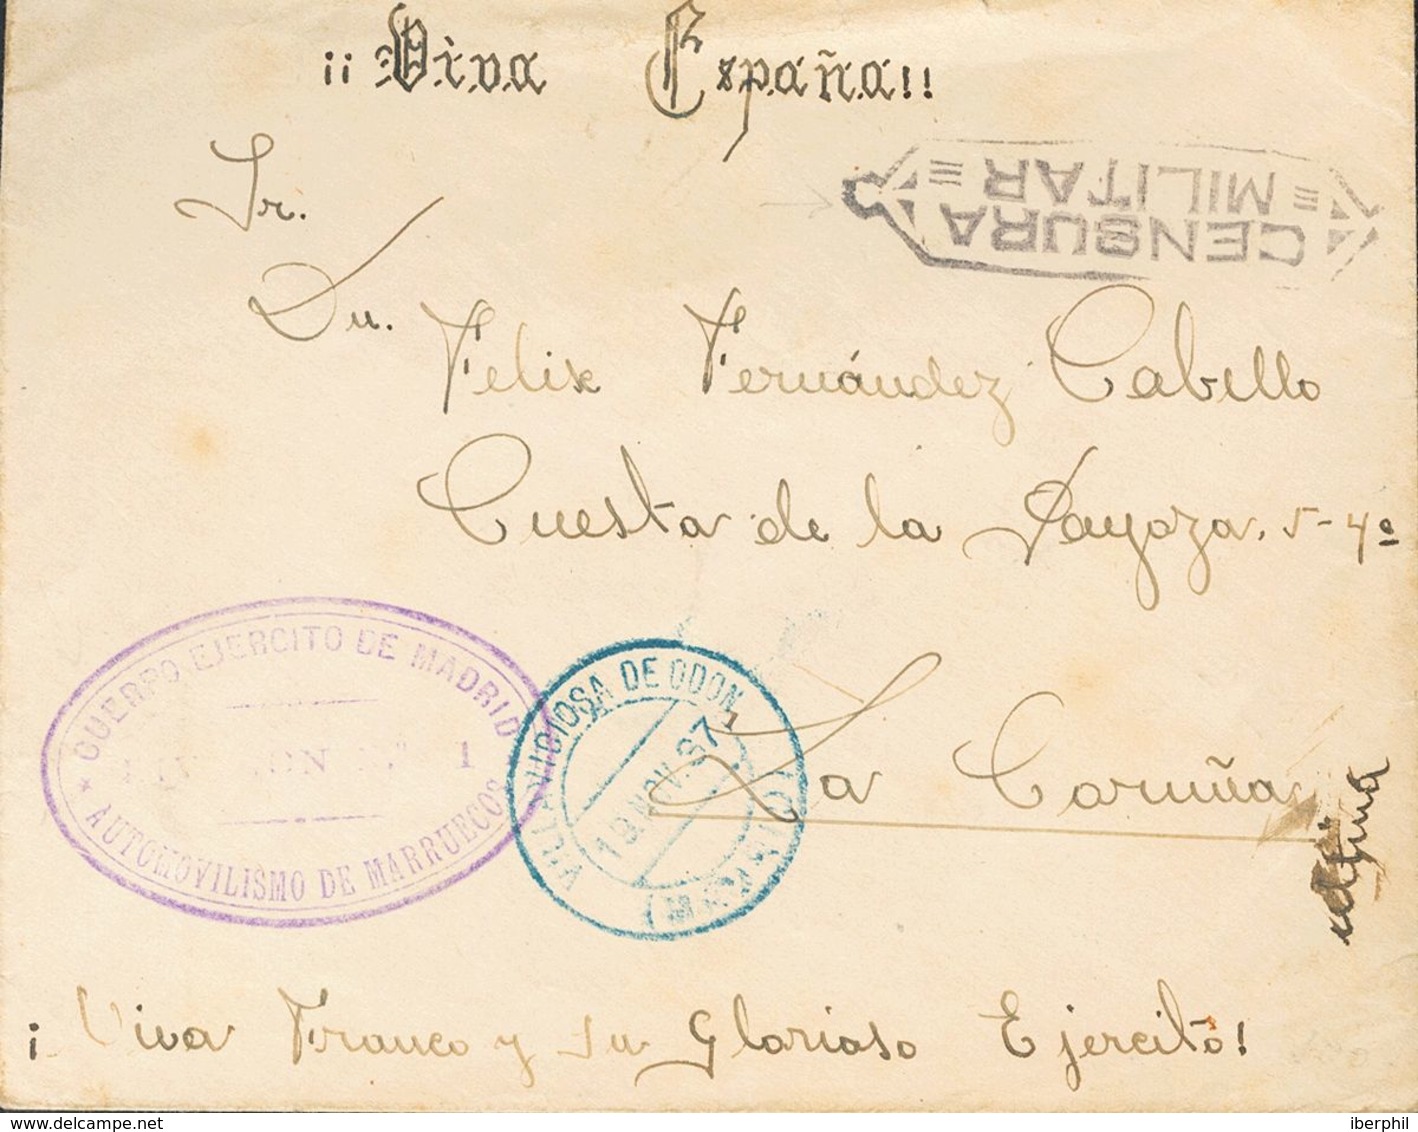 ¡¡Viva España!!
CENSURA
MILITAR
Sr.
Dn. Felix Fernández Cabello
Cuesta de la Payoza. 5-4º
La Coruña
CUERPO EJERCITO DE MADRID
1
AUTOMOVILISMO DE MARRUECOS
VILLAVICIOSA DE ODON
NOV. 37
¡Viva Franco y su Glorioso Ejercito!
www.delcampe.net
iberphil